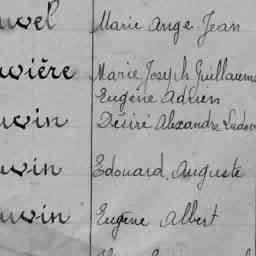 uvel Marie Ange Jean
uvière Marie Joseph Guillaume
Eugène Adrien
uvin Désiré Alexandre Ludov
uvin Edouard Auguste
uvin Eugène Albert